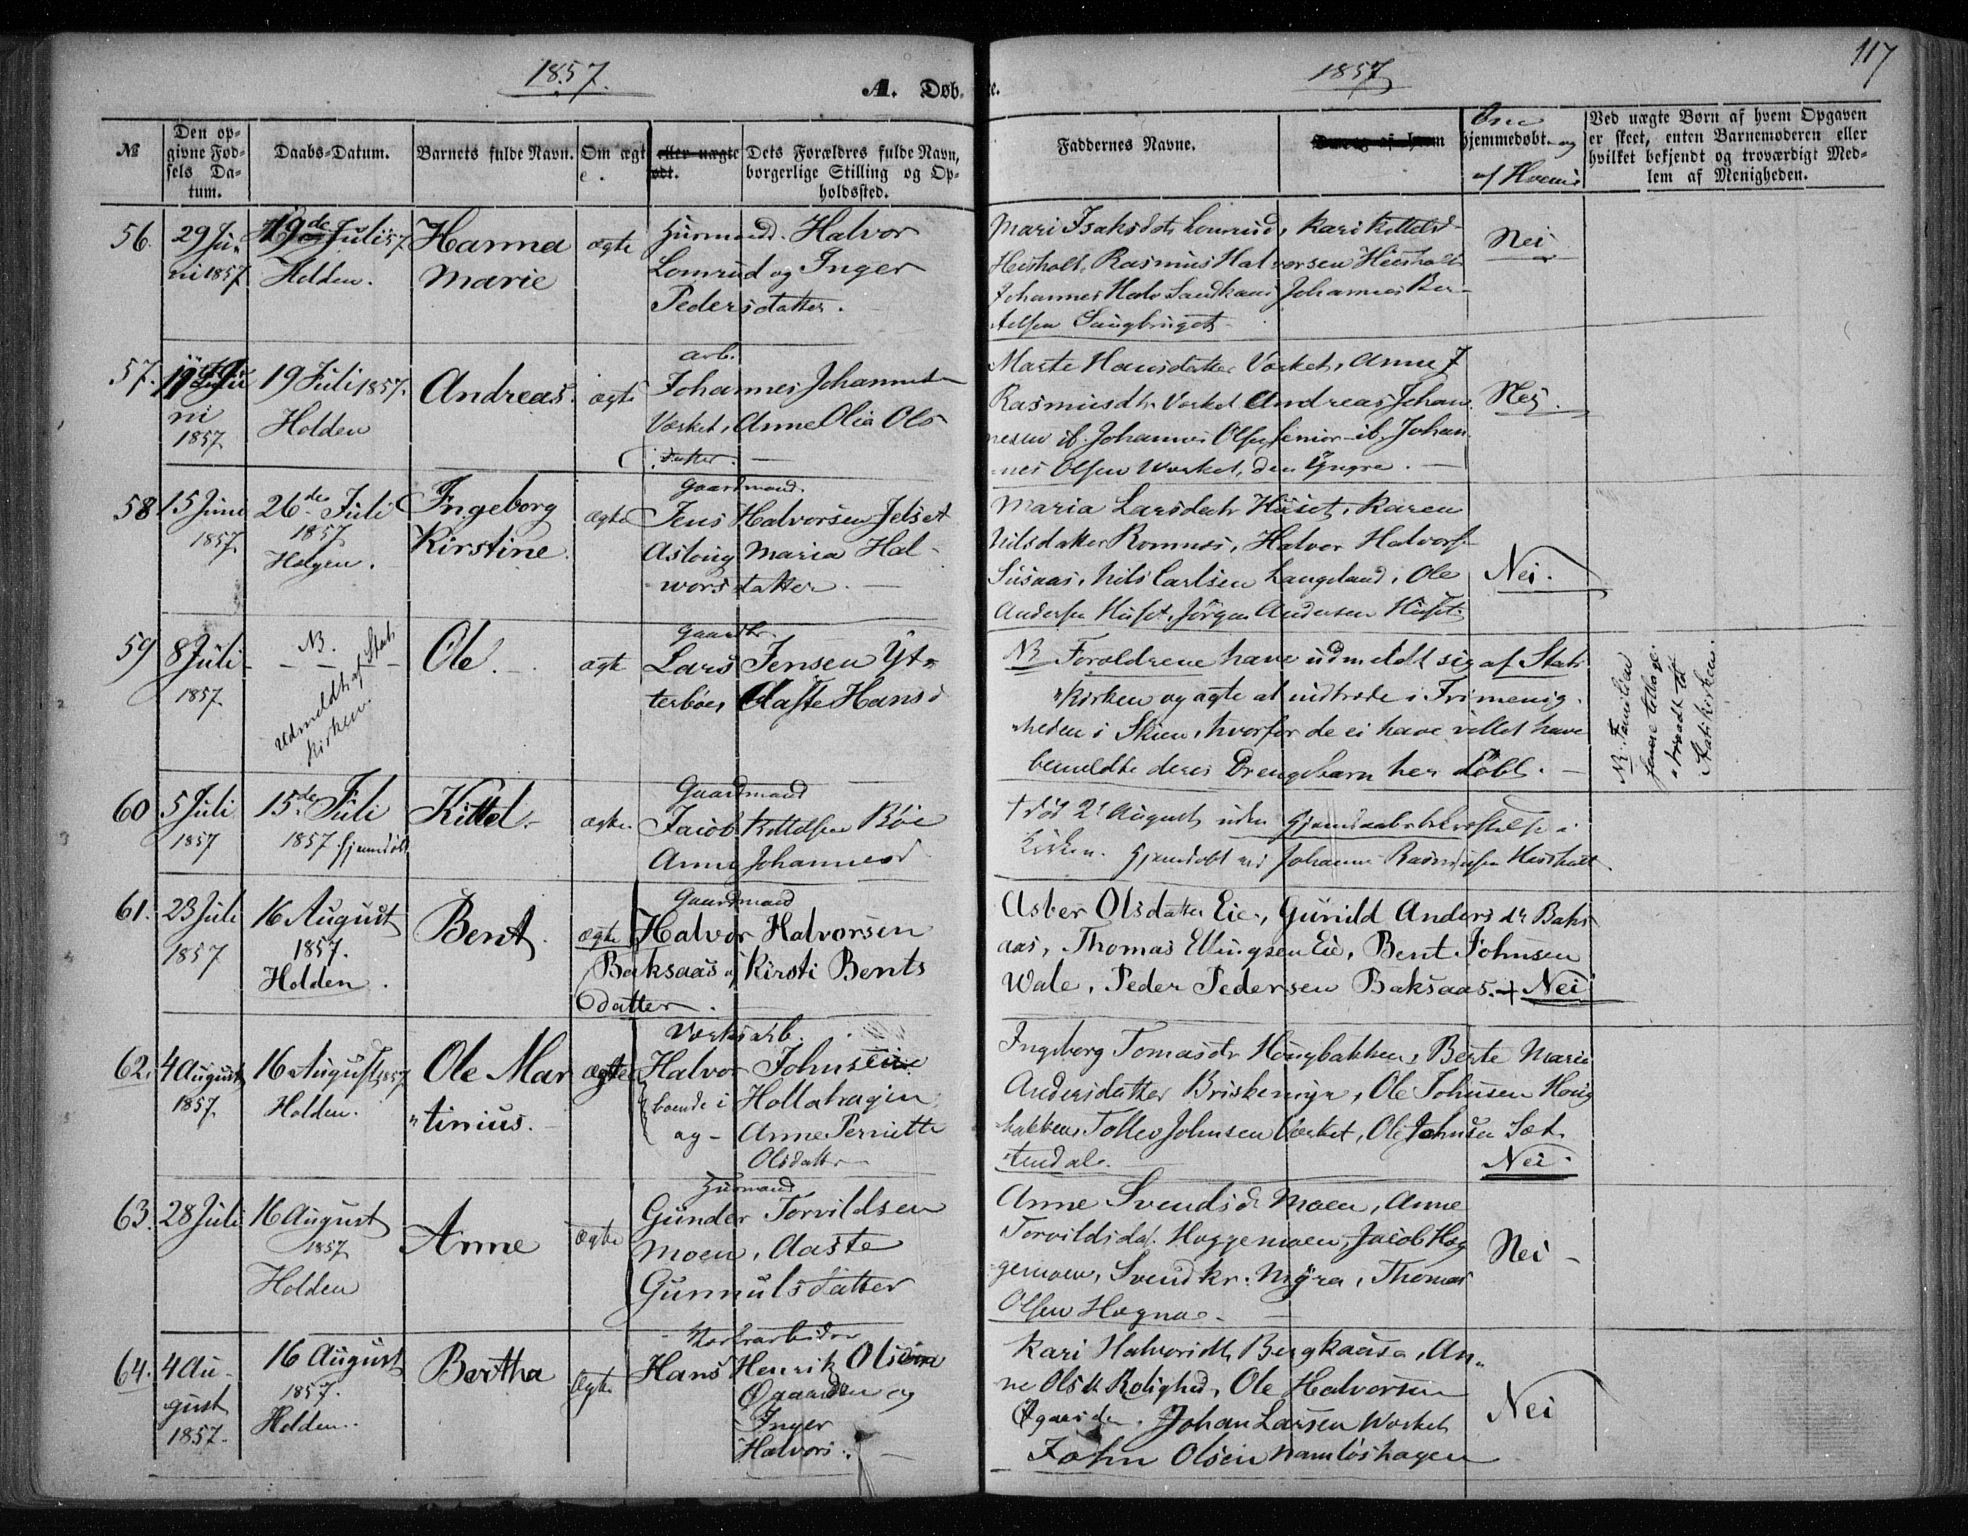 1857. A. Døb- e. 1857 117
№ Den opgivne Fødsels Datum. Daabs-Datum. Barnets fulde Navn. Om ægte eller uægte født. Dets Forældres fulde Navn, borgerlige Stilling og Opholdssted.
Faddernes Navne. Om hjemmedøbt og af Hvem Ved uægte Børn af hvem Opgaven er skeet, enten Barnemoderen eller hvilket bekjendt og troværdigt Medlem af Menigheden.
56. 29 Juni 1857 19de Juli 57 Holden. Hanna Marie ægte
Huusmand. Halvor
Lomrud og Inger
Pedersdatter.
Mari Isaksdtr Lomrud, Kari Kittelsd
Heisholt, Rasmus Halvorsen Heisholt
Johannes Halv Sandkaas Johannes Ber-
telsen Saugbruget
Nei
57. ni 1857 19 Juli 1857. Holden Andreas. ægte
arb.
Johannes Johannesen
Værket, Anne Olia Ols-
datter.
Marte Hansdatter Værket, Anne J
Rasmusdtr Værket Andreas Johan-
nesen ib. Johannes Olsen senior ib. Johan-
nes Olsen Værket, den Yngre.
Nei.
58 15 Juni 1857 26de Juli 1857 Helgen. Ingeborg Kirstine. ægte
Gaardmand.
Jens Halvorsen Jelset
Asloug Maria Hal-
vorsdatter.
Maria Larsdatr Huset, Karen
Nilsdatter Romnes, Halvor Halvors
Susaas, Nils Carlsen Langeland, Ole
Andersen Huset, Jørgen Andersen Huset.
Nei.
59 8 Juli 1857 NB. Udmeldt af Stats kirken. Ole. ægte
Gaardbr.
Lars Jensen Yt-
terbøe, Aaste Hansd
NB Forældrene have udmeldt sig af Stats
kirken og agte at indtræde i Frimenig-
heden i Skien, hvorfor de ei have villet have
bemeldte deres Drengebarn her døbt.
NB. Familien
senere tilbage-
traadt til
Statskirken.
60 5 Juli 1857 15de Juli 1857. hjemdøbt Kittel. ægte
Gaardmand
Jacob Kittelsen Bøe
Anne Johannesd
† død 2 August uden Hjemdaabsbekræftelse i
Kirken. Hjemdøbt ved Johannes Rasmusen Heisholt
61. 23 Juli 1857 16 August 1857. Holden. Bent. ægte
Gaardmand
Halvor Halvorsen
Baksaas, Kirsti Bents
datter.
Asber Olsdatter Eie, Gunild Anders dtr Baks-
aas, Thomas Ellingsen Eie, Bent Johnsen
Wale, Peder Pedersen Baksaas. + Nei
62. 4 August 1857. 16 August 1857 Holden. Ole Mar-tinius. ægte
Værksarb.
Halvor Johnsen
boende i Hollahagen
og Anne Pernette
Olsdattr
Ingeborg Tomasdr Hougbakken, Berte Marie
Andersdatter Briskemyr, Ole Johnsen Houg
bakken, Tollev Johnsen Værket, Ole Johnsen Sæt-
tendale.
Nei.
63. 28 Juli 16 August 1857 Holden Anne ægte
Husmand
Gunder Torvildsen
Moen, Aaste
Gunnulsdatter
Anne Svendsd. Moen, Anne
Torvildsdat. Hoggemoen, Jacob Hog
gemoen, Svend Kr. Myra, Thomas
Olsen Hogna
Nei
64. 4 August 1857. 16 August 1857. Holden. Bertha ægte
Værksarbeider
Hans Henrik Olsen
Øgaarden og
Inger
Halvors.
Kari Halvorsdtr Bergkaasa, An-
ne Olsdtr Rolighed, Ole Halvorsen
Øgaarden. Johan Larsen Værket
John Olsen Namløshagen
Nei